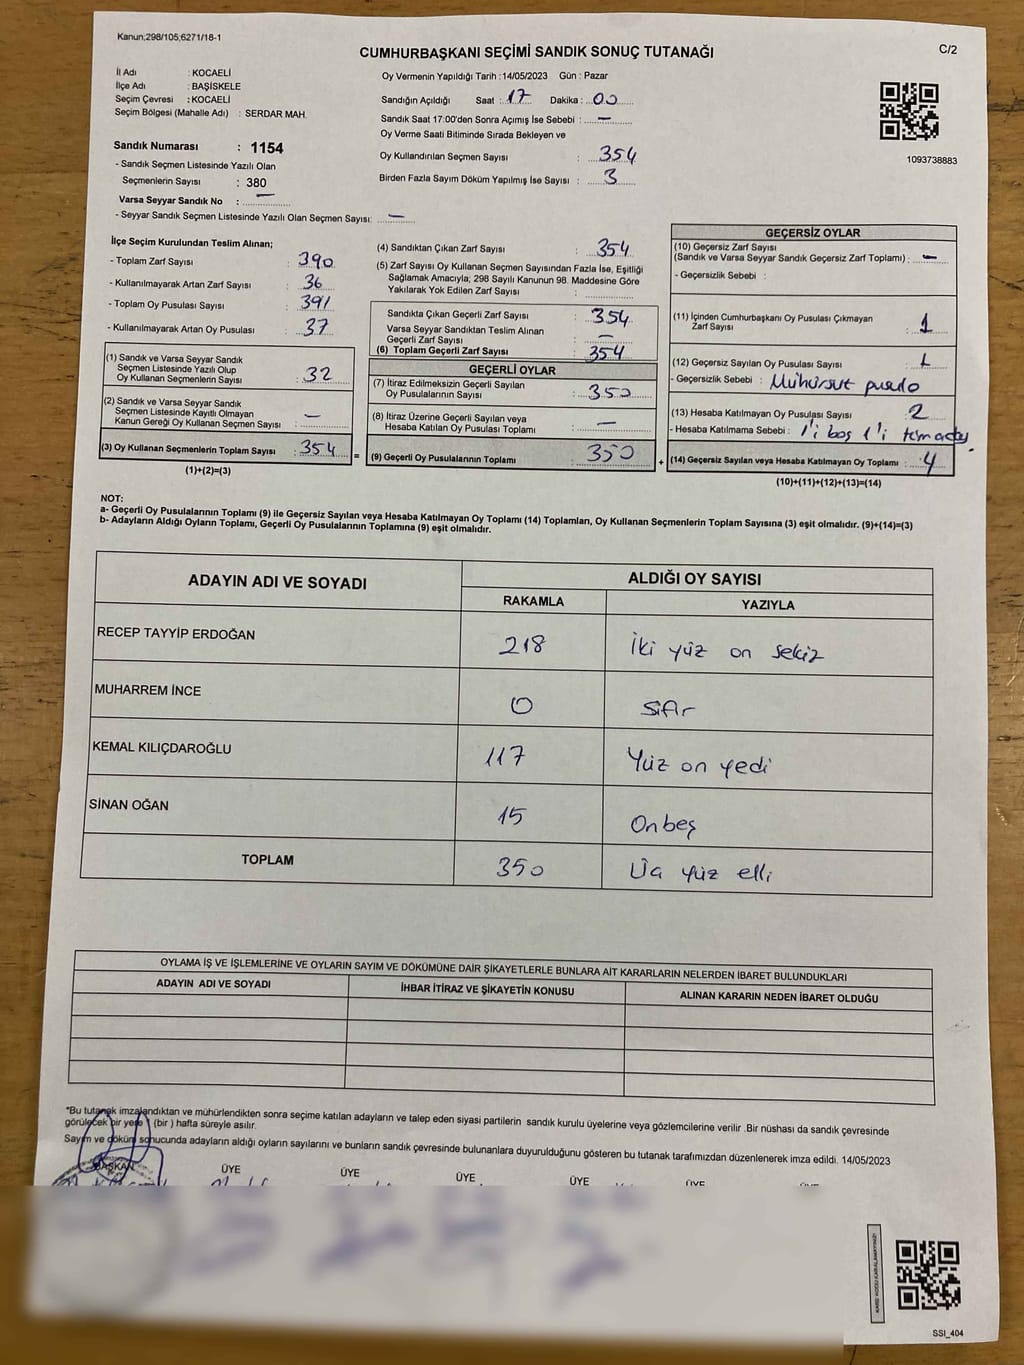 Kanun;298/105;6271/18-1
CUMHURBAŞKANI SEÇİMİ SANDIK SONUÇ TUTANAĞI
C/2
İl Adı : KOCAELİ
İlçe Adı : BAŞİSKELE
Seçim Çevresi : KOCAELİ
Seçim Bölgesi (Mahalle Adı) : SERDAR MAH.
Sandık Numarası : 1154
- Sandık Seçmen Listesinde Yazılı Olan
Seçmenlerin Sayısı : 380
Varsa Seyyar Sandık No : —
- Seyyar Sandık Seçmen Listesinde Yazılı Olan Seçmen Sayısı: —
Oy Vermenin Yapıldığı Tarih :14/05/2023 Gün : Pazar
Sandığın Açıldığı Saat : 17 Dakika : 00
Sandık Saat 17:00'den Sonra Açımış İse Sebebi : —
Oy Verme Saati Bitiminde Sırada Bekleyen ve
Oy Kullandırılan Seçmen Sayısı : 354
Birden Fazla Sayım Döküm Yapılmış İse Sayısı : 3
1093738883
İlçe Seçim Kurulundan Teslim Alınan;
- Toplam Zarf Sayısı : 390
- Kullanılmayarak Artan Zarf Sayısı : 36
- Toplam Oy Pusulası Sayısı : 391
- Kullanılmayarak Artan Oy Pusulası : 37
(1) Sandık ve Varsa Seyyar Sandık
Seçmen Listesinde Yazılı Olup
Oy Kullanan Seçmenlerin Sayısı : 32
(2) Sandık ve Varsa Seyyar Sandık
Seçmen Listesinde Kayıtlı Olmayan
Kanun Gereği Oy Kullanan Seçmen Sayısı : —
(3) Oy Kullanan Seçmenlerin Toplam Sayısı : 354
(1)+(2)=(3)
=
(4) Sandıktan Çıkan Zarf Sayısı : 354
(5) Zarf Sayısı Oy Kullanan Seçmen Sayısından Fazla İse, Eşitliği
Sağlamak Amacıyla; 298 Sayılı Kanunun 98. Maddesine Göre
Yakılarak Yok Edilen Zarf Sayısı :
Sandıkta Çıkan Geçerli Zarf Sayısı : 354
Varsa Seyyar Sandıktan Teslim Alınan
Geçerli Zarf Sayısı : —
(6) Toplam Geçerli Zarf Sayısı : 354
GEÇERLİ OYLAR
(7) İtiraz Edilmeksizin Geçerli Sayılan
Oy Pusulalarının Sayısı : 350
(8) İtiraz Üzerine Geçerli Sayılan veya
Hesaba Katılan Oy Pusulası Toplamı : —
(9) Geçerli Oy Pusulalarının Toplamı : 350
+
GEÇERSİZ OYLAR
(10) Geçersiz Zarf Sayısı
(Sandık ve Varsa Seyyar Sandık Geçersiz Zarf Toplamı) : —
- Geçersizlik Sebebi :
(11) İçinden Cumhurbaşkanı Oy Pusulası Çıkmayan
Zarf Sayısı : 1
(12) Geçersiz Sayılan Oy Pusulası Sayısı : 1
- Geçersizlik Sebebi : Mühürsüz pusula
(13) Hesaba Katılmayan Oy Pusulası Sayısı : 2
- Hesaba Katılmama Sebebi : 1'i boş 1'i
(14) Geçersiz Sayılan veya Hesaba Katılmayan Oy Toplamı : 4
(10)+(11)+(12)+(13)=(14)
NOT:
a- Geçerli Oy Pusulalarının Toplamı (9) ile Geçersiz Sayılan veya Hesaba Katılmayan Oy Toplamı (14) Toplamları, Oy Kullanan Seçmenlerin Toplam Sayısına (3) eşit olmalıdır. (9)+(14)=(3)
b- Adayların Aldığı Oyların Toplamı, Geçerli Oy Pusulalarının Toplamına (9) eşit olmalıdır.
ADAYIN ADI VE SOYADI
ALDIĞI OY SAYISI
RAKAMLA YAZIYLA
RECEP TAYYİP ERDOĞAN 218 İki yüz on sekiz
MUHARREM İNCE 0 Sıfır
KEMAL KILIÇDAROĞLU 117 Yüz on yedi
SİNAN OĞAN 15 Onbeş
TOPLAM 350 Üç yüz elli
OYLAMA İŞ VE İŞLEMLERİNE VE OYLARIN SAYIM VE DÖKÜMÜNE DAİR ŞİKAYETLERLE BUNLARA AİT KARARLARIN NELERDEN İBARET BULUNDUKLARI
ADAYIN ADI VE SOYADI İHBAR İTİRAZ VE ŞİKAYETİN KONUSU ALINAN KARARIN NEDEN İBARET OLDUĞU
*Bu tutanak imzalandıktan ve mühürlendikten sonra seçime katılan adayların ve talep eden siyasi partilerin sandık kurulu üyelerine veya gözlemcilerine verilir .Bir nüshası da sandık çevresinde
görülecek bir yere 1 (bir ) hafta süreyle asılır.
Sayım ve döküm sonucunda adayların aldığı oyların sayılarını ve bunların sandık çevresinde bulunanlara duyurulduğunu gösteren bu tutanak tarafımızdan düzenlenerek imza edildi. 14/05/2023
BAŞKAN ÜYE ÜYE ÜYE ÜYE ÜYE ÜYE
SSI_404